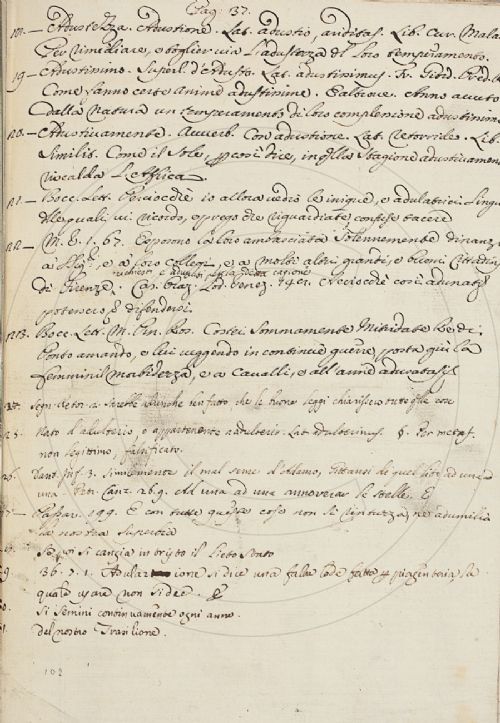 Pag: 137.
— Adustezza. Adustione. Lat. adustio, ariditas. Lib. cur. Mala
Per umiliare, e toglier via l'adustezza del loro temperamento.
19 — Adustissimo. Superl. d'Adusto. Lat. adustissimus. Fr. Giord. Pred.
Come sanno certe anime adustissime. E altrove. Anno avuto
dalla natura un temperamento di loro complessione adustissima
20. — Adustivamente. Avverb. Con adustione. Lat. Lib.
Similit. Come il Sole, così dice, in Stagione adustivamente
riscalda l'Affrica.
21 — Bocc. Lett. Perciocchè io allora vedrò le inique, e adulatrici lingue
delle quali vi ricordo, e prego che riguardiate confuse tacere
22 — M. V. 1. 67. Esposono la loro ambasciata solennemente dinanzi
a e a loro Collegi, e a molti altri grandi, e buoni Cittadini
richiesti e adunati per la detta cagione
di Firenze. Perciocchè così adunati
potessero difendersi.
123. Bocc. Lett. Pin. Ross. Costei sommamente Mitridate Re di
Ponto amando, e lui seguendo in continue guerre, posta giù la
femminil morbidezza, e a cavalli, e all'armi adusatasi
che le buone leggi chiariscono tutte quelle cose
25. Nato d'adulterio, o appartenente a adulterio. Lat. adulterinus. §. Per metaf.
non legittimo, falsificato.
26. Dant. Inf. 3. Similemente il mal seme d'Adamo, Gittansi di quel lito ad una ad
una Petr. Canz. 26. 9. Ad una ad una annoverar le stelle. E
Passav. 199. E con tutte queste cose non si rintuzza, nè adumilia
la nostra superbia
si cangia in tristo il lieto stato
36. 7. 1. Adulazione si dice una falsa lode fatta piagenteria la
quale usare non si dee. E
Si semini continuamente ogni anno.
del nostro Trasilione.
102